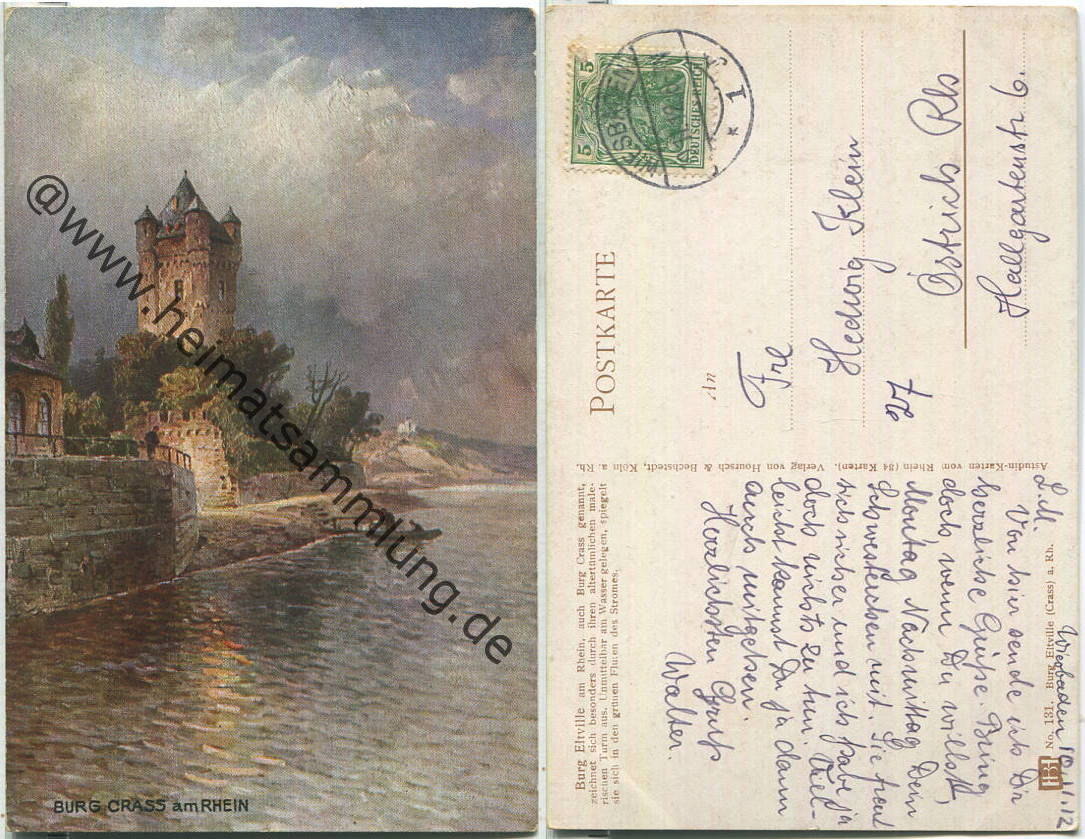 BURG CRASS am RHEIN
@www.heimatsammlung.de
POSTKARTE
An
5
5
DEUTSCHES REICH
WIESBADEN
* 1
Hedwig Klein
Östrich
Hallgartenstr. 6.
Astudin-Karten vom Rhein (84 Karten). Verlag von Hoursch & Bechstedt, Köln a. Rh.
Burg Eltville am Rhein, auch Burg Crass genannt,
zeichnet sich besonders durch ihren altertümlichen male-
rischen Turm aus. Unmittelbar am Wasser gelegen, spiegelt
sie sich in den grünen Fluten des Stromes.
HB No. 131. Burg Eltville (Crass) a. Rh.
Wiesbaden 10.1.12
L. H.
Von hier sende ich Dir
herzliche Grüße. Bring
doch wenn Du willst,
Montag Nachmittag Dein
Schwesterchen mit. Sie freut
sich sicher und ich habe ja
doch nichts zu tun. Viel-
leicht kannst Du ja dann
auch mitgehen.
Herzlichsten Gruß
Walter.